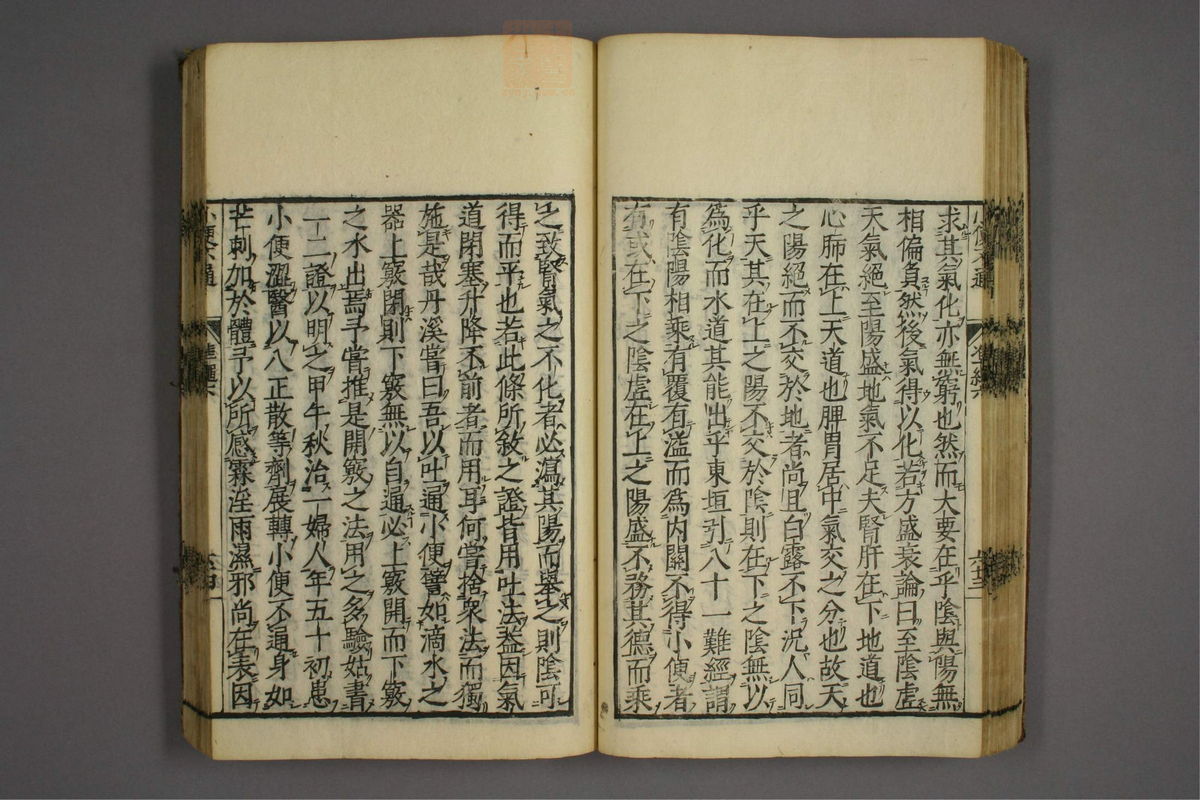 求其氣化亦無窮也然而大要在乎陰與陽無
相偏負然後氣得以化若方盛衰論曰至陰虛
天氣絕至陽盛地氣不足夫腎肝在下地道也
心肺在上天道也脾胃居中氣交之分也故天
之陽絕而不交於地者尚且白露不下況人同
乎天其在上之陽不交於陰則在下之陰無以
為化而水道其能出乎東垣引八十一難經謂
有陰陽相乘有覆有溢而為内關不得小便者
有或在下之陰虛在上之陽盛不務其德而乘
之致腎氣之不化者必瀉其陽而舉之則陰可
得而平也若此條所敘之證皆用吐法葢因氣
道閉塞升降不前者而用耳何嘗捨衆法而獨
施是哉丹溪嘗曰吾以吐通小便譬如滴水之
器上竅閉則下竅無以自通必上竅開而下竅
之水出焉予嘗推是開竅之法用之多驗姑書
一二證以明之甲午秋治一婦人年五十初患
小便澀醫以八正散等劑展轉小便不通身如
芒刺加於體予以所感霖淫雨濕邪尚在表因
小便不通
六十四
小便不通
六十三